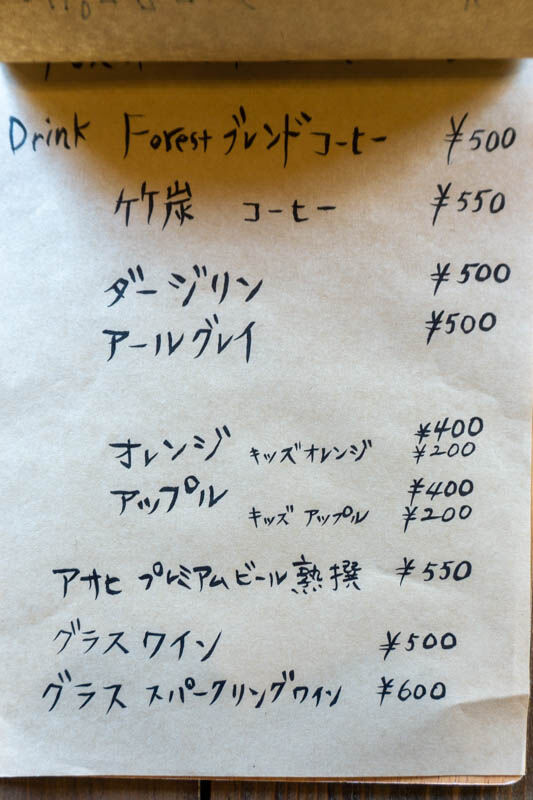 Drink Forestブレンドコーヒー ¥500
竹炭 コーヒー ¥550
ダージリン ¥500
アールグレイ ¥500
オレンジ ¥400
キッズオレンジ ¥200
アップル ¥400
キッズ アップル ¥200
アサヒ プレミアムビール熟撰 ¥550
グラスワイン ¥500
グラス スパークリングワイン ¥600